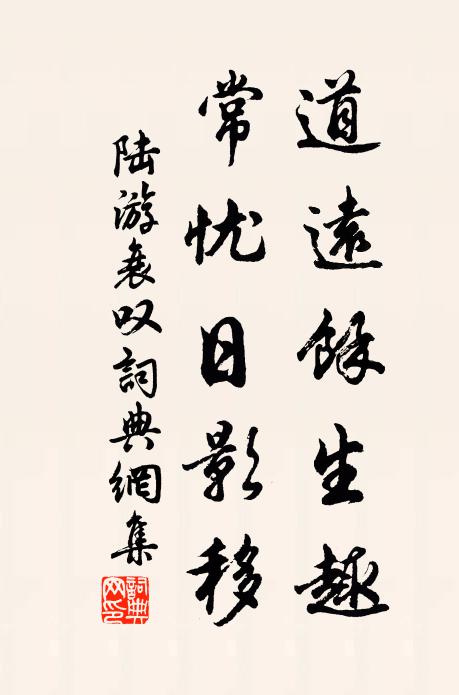 道遠餘生趣
常忧日影移
陆游衰叹詞典網集
詞典网印